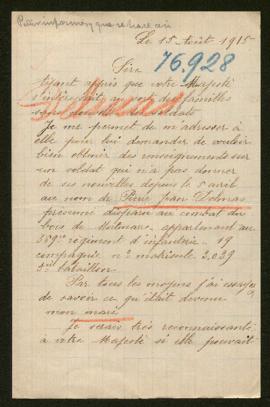 Pedir informes y que se hace así
Le 15 Août 1915
76.928
Sire
Ayant appris que votre Majesté
s'intéressait au sort des familles
sans nouvelles soldats
Je me permet de m'adresser à
elle pour lui demander de vouloir
bien obtenir des renseignements sur
un soldat qui n'a pas donner
de ses nouvelles depuis le 5 avril
au nom de Pierre Jean Delmas
présumé disparu au combat du
bois de Mortmare, appartenant au
359e régiment d'infanterie 19
compagnie n° matricule 2.039
5e bataillon.
Par tous les moyens j'ai essayé
de savoir ce qu'était devenu
mon mari
Je serais très reconnaissante
à votre Majesté si elle pouvait